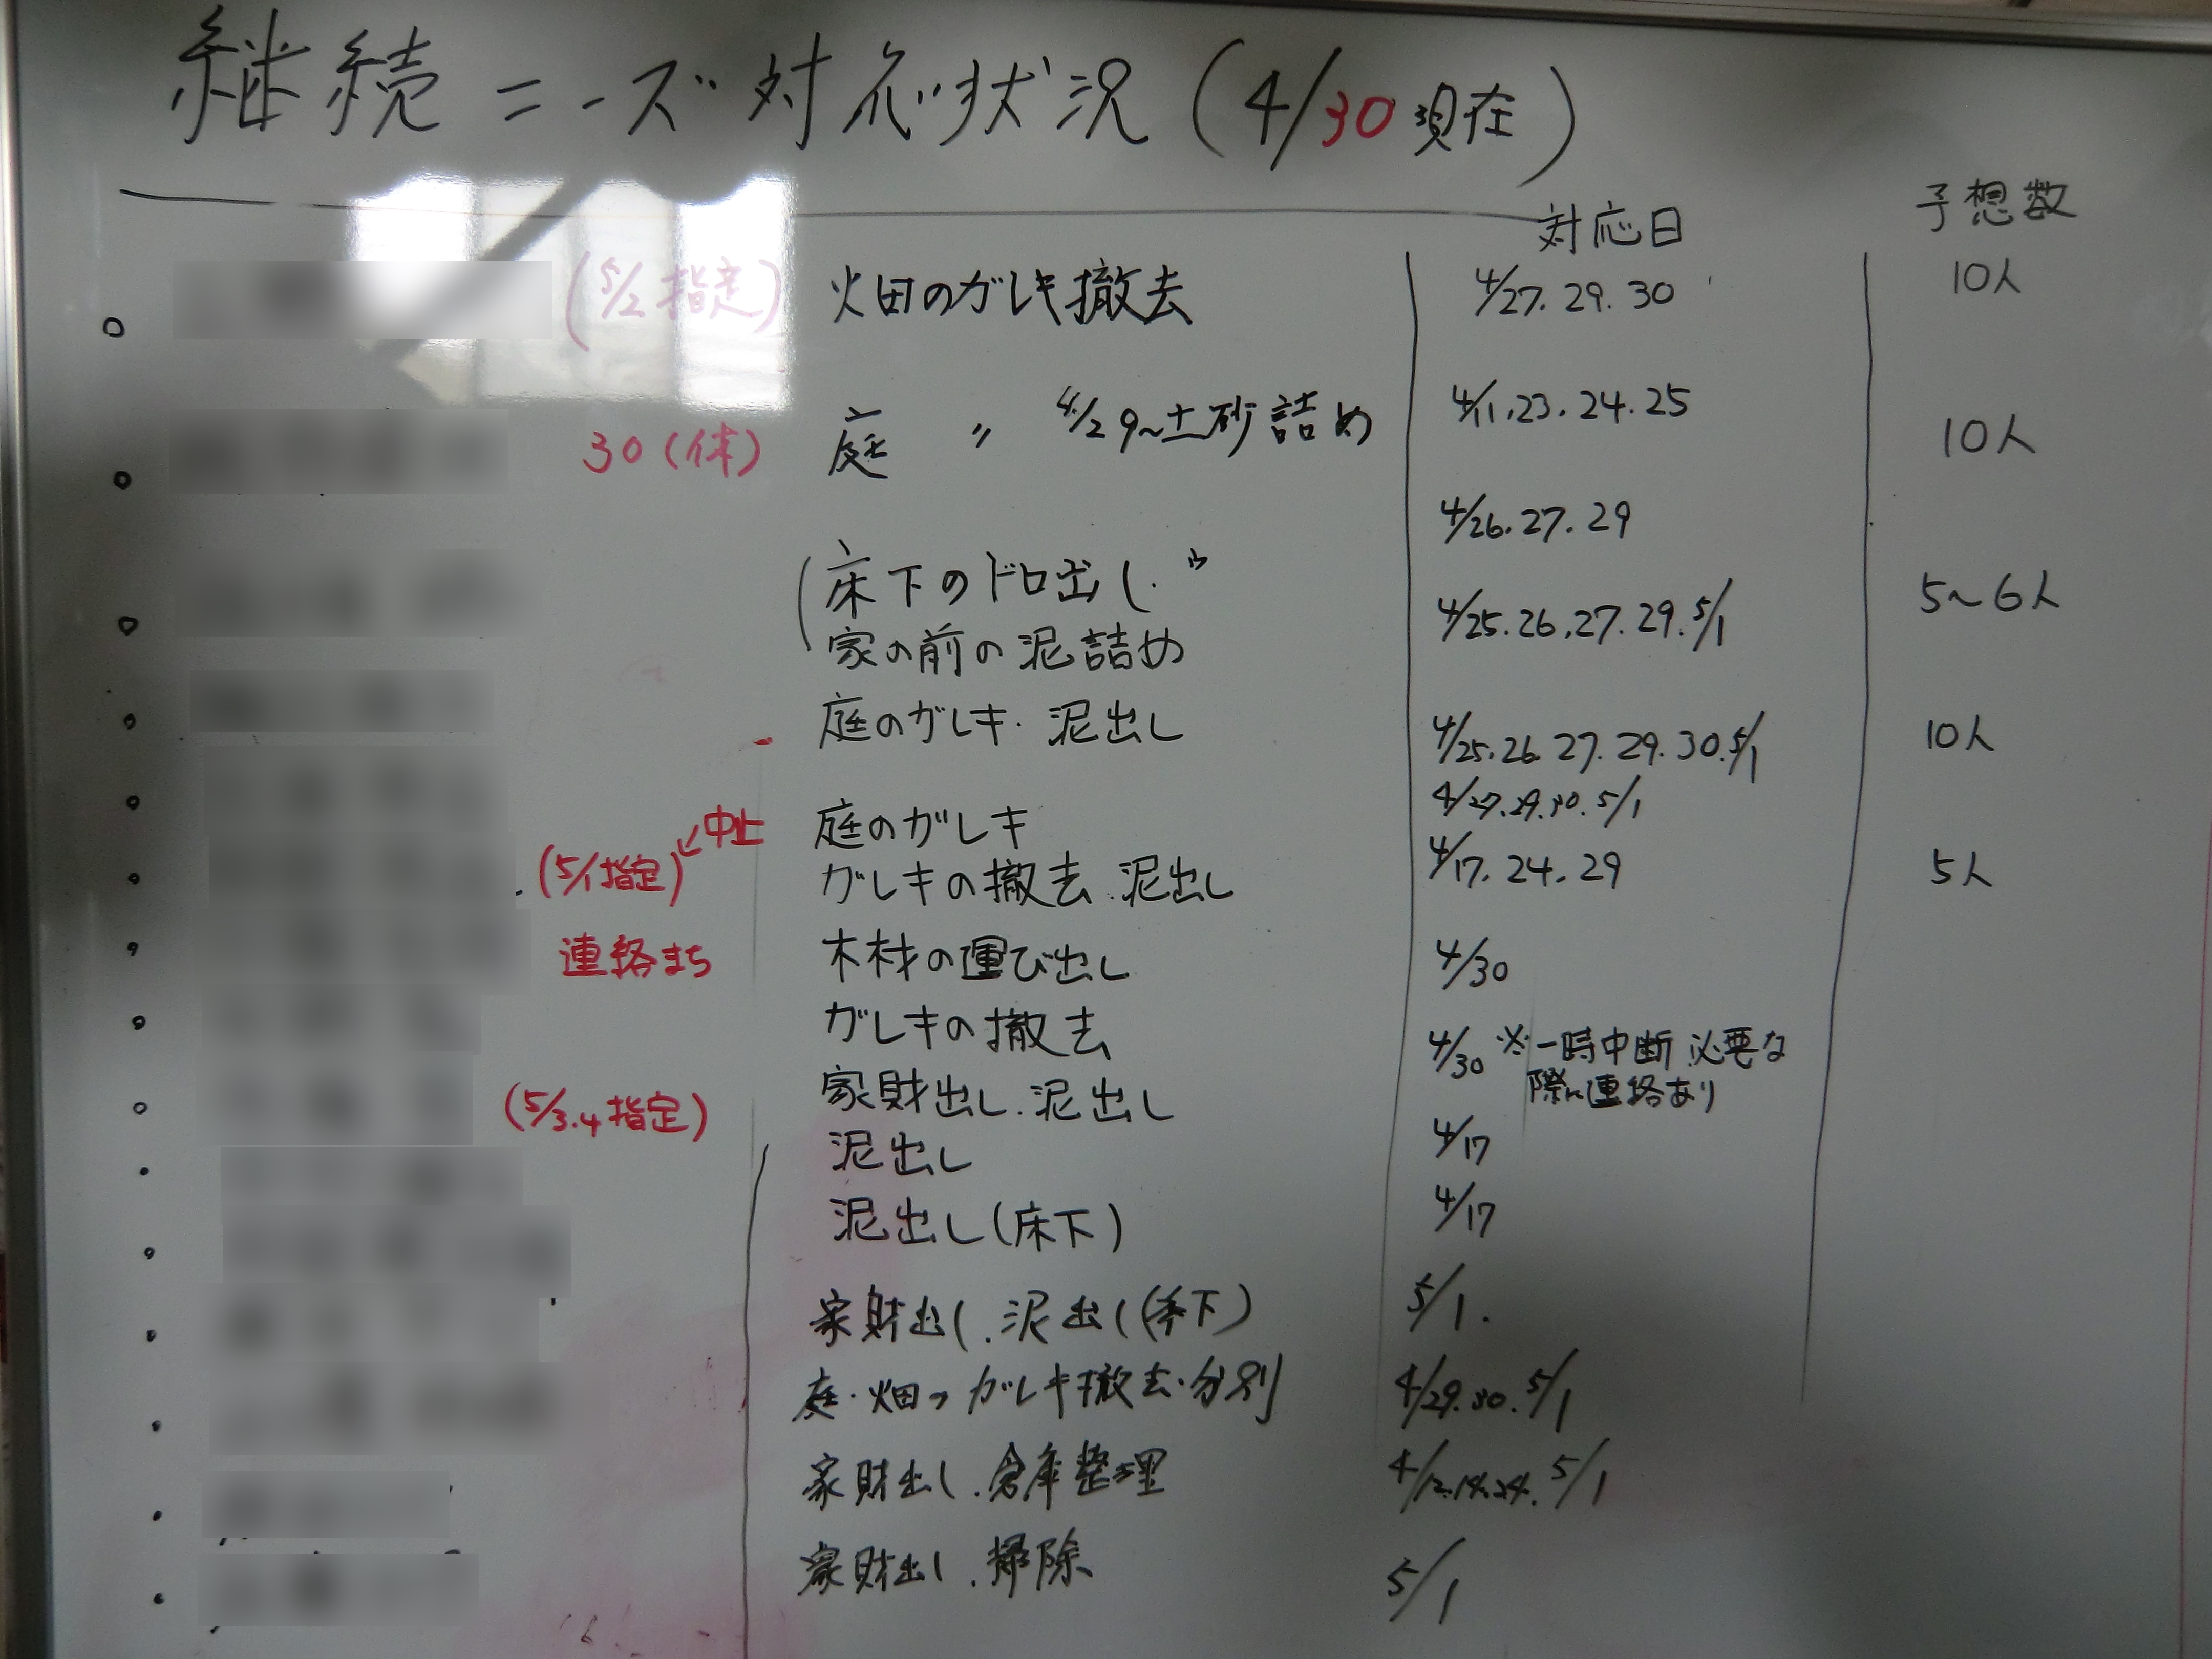 継続ニーズ対応状況(4/30現在)
対応日 予想数
(5/2指定) 畑のガレキ撤去 4/27.29.30 10人
30(休) 庭 〃 4/29~土砂詰め 4/11.23.24.25 10人
4/26.27.29
床下のドロ出し.
家の前の泥詰め 4/25.26.27.29.5/1 5~6人
庭のガレキ.泥出し 4/25.26.27.29.30.5/1 10人
中止 庭のガレキ 4/27.29.30.5/1
(5/1指定) ガレキの撤去.泥出し 4/17.24.29 5人
連絡まち 木材の運び出し 4/30
ガレキの撤去 4/30 ※一時中断 必要な
際に連絡あり
(5/3.4指定) 家財出し.泥出し
泥出し 4/17
泥出し(床下) 4/17
家財出し.泥出し(床下) 5/1.
庭・畑のガレキ撤去・分別 4/29.30.5/1
家財出し.倉庫整理 4/12.14.24.5/1
家財出し.掃除 5/1